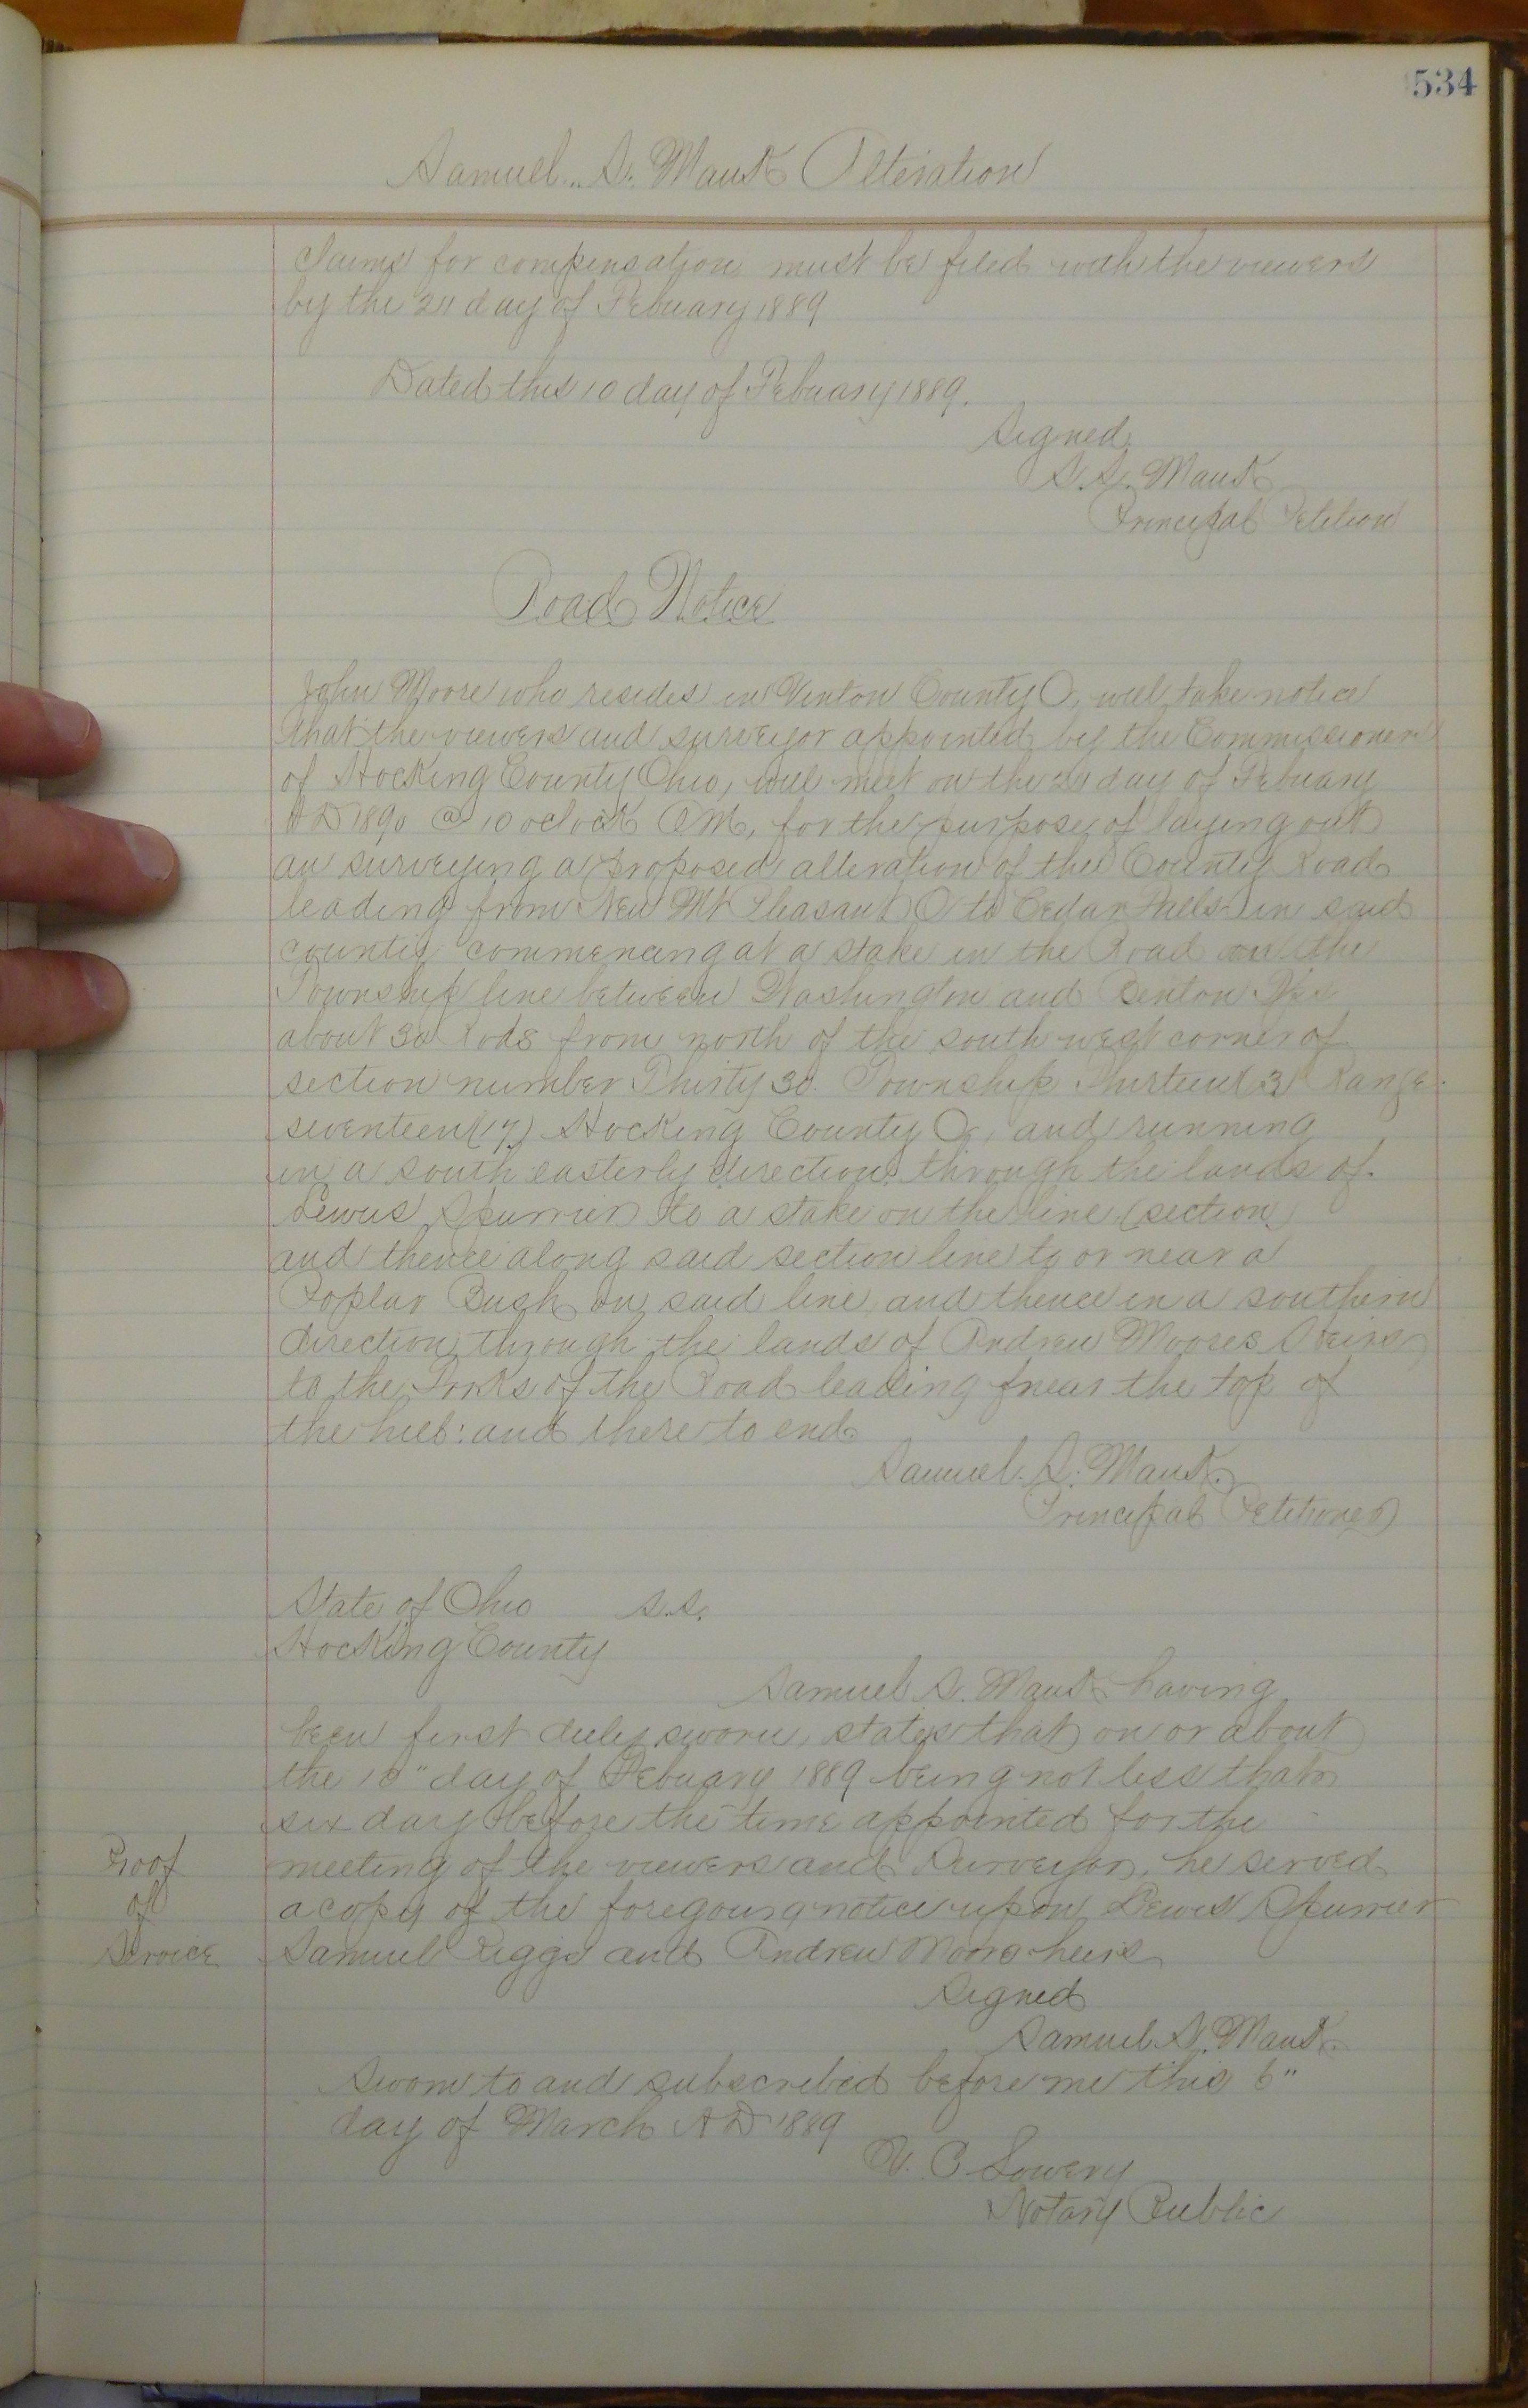 534
Samuel S. Mauk Alteration
Claims for compensation must be filed with the viewers
by the 21 day of Febuary 1889
Dated this 10 day of Febuary 1889.
Signed
S. S. Mauk
Principal Petition
Road Notice
John Moore who resides in Vinton County O, will take notice
that the viewers and surveyor appointed by the Commissioners
of Hocking County Ohio, will meet on the 21 day of Febuary
AD 1890 @ 10 oclock AM, for the purpose of laying out
an surveying a proposed alteration of the County Road
leading from New Mt Pleasant O to Cedar Falls in said
county commencing at a stake in the Road on the
Township line between Washington and Benton
about 30 Rods from north of the south west corner of
section number Thirty 30. Township Thirteen 13 Range
seventeen (17) Hocking County O, and running
in a south easterly direction through the lands of
Lewis Spurrier to a stake on the line (section)
and thence along said section line to or near a
Poplar Bush on said line, and thence in a southern
direction through the lands of Andrew Moores Heirs
to the Forks of the Road leading near the top of
the hill: and there to end
Samuel. S. Mauk.
Principal Petitioner
State of Ohio S.S.
Hocking County
Samuel S. Mauk having
been first duly sworn, states that on or about
the 10" day of Febuary 1889 being not less than
six day before the time appointed for the
Proof
of
Service
meeting of the viewers and Surveyor, he served
a copy of the foregoing notice upon Lewis Spurrier
Samuel Riggs and Andrew Moore heirs
Signed
Samuel S. Mauk.
Sworn to and subscribed before me this 6"
day of March AD 1889
V. C. Lowery
Notary Public